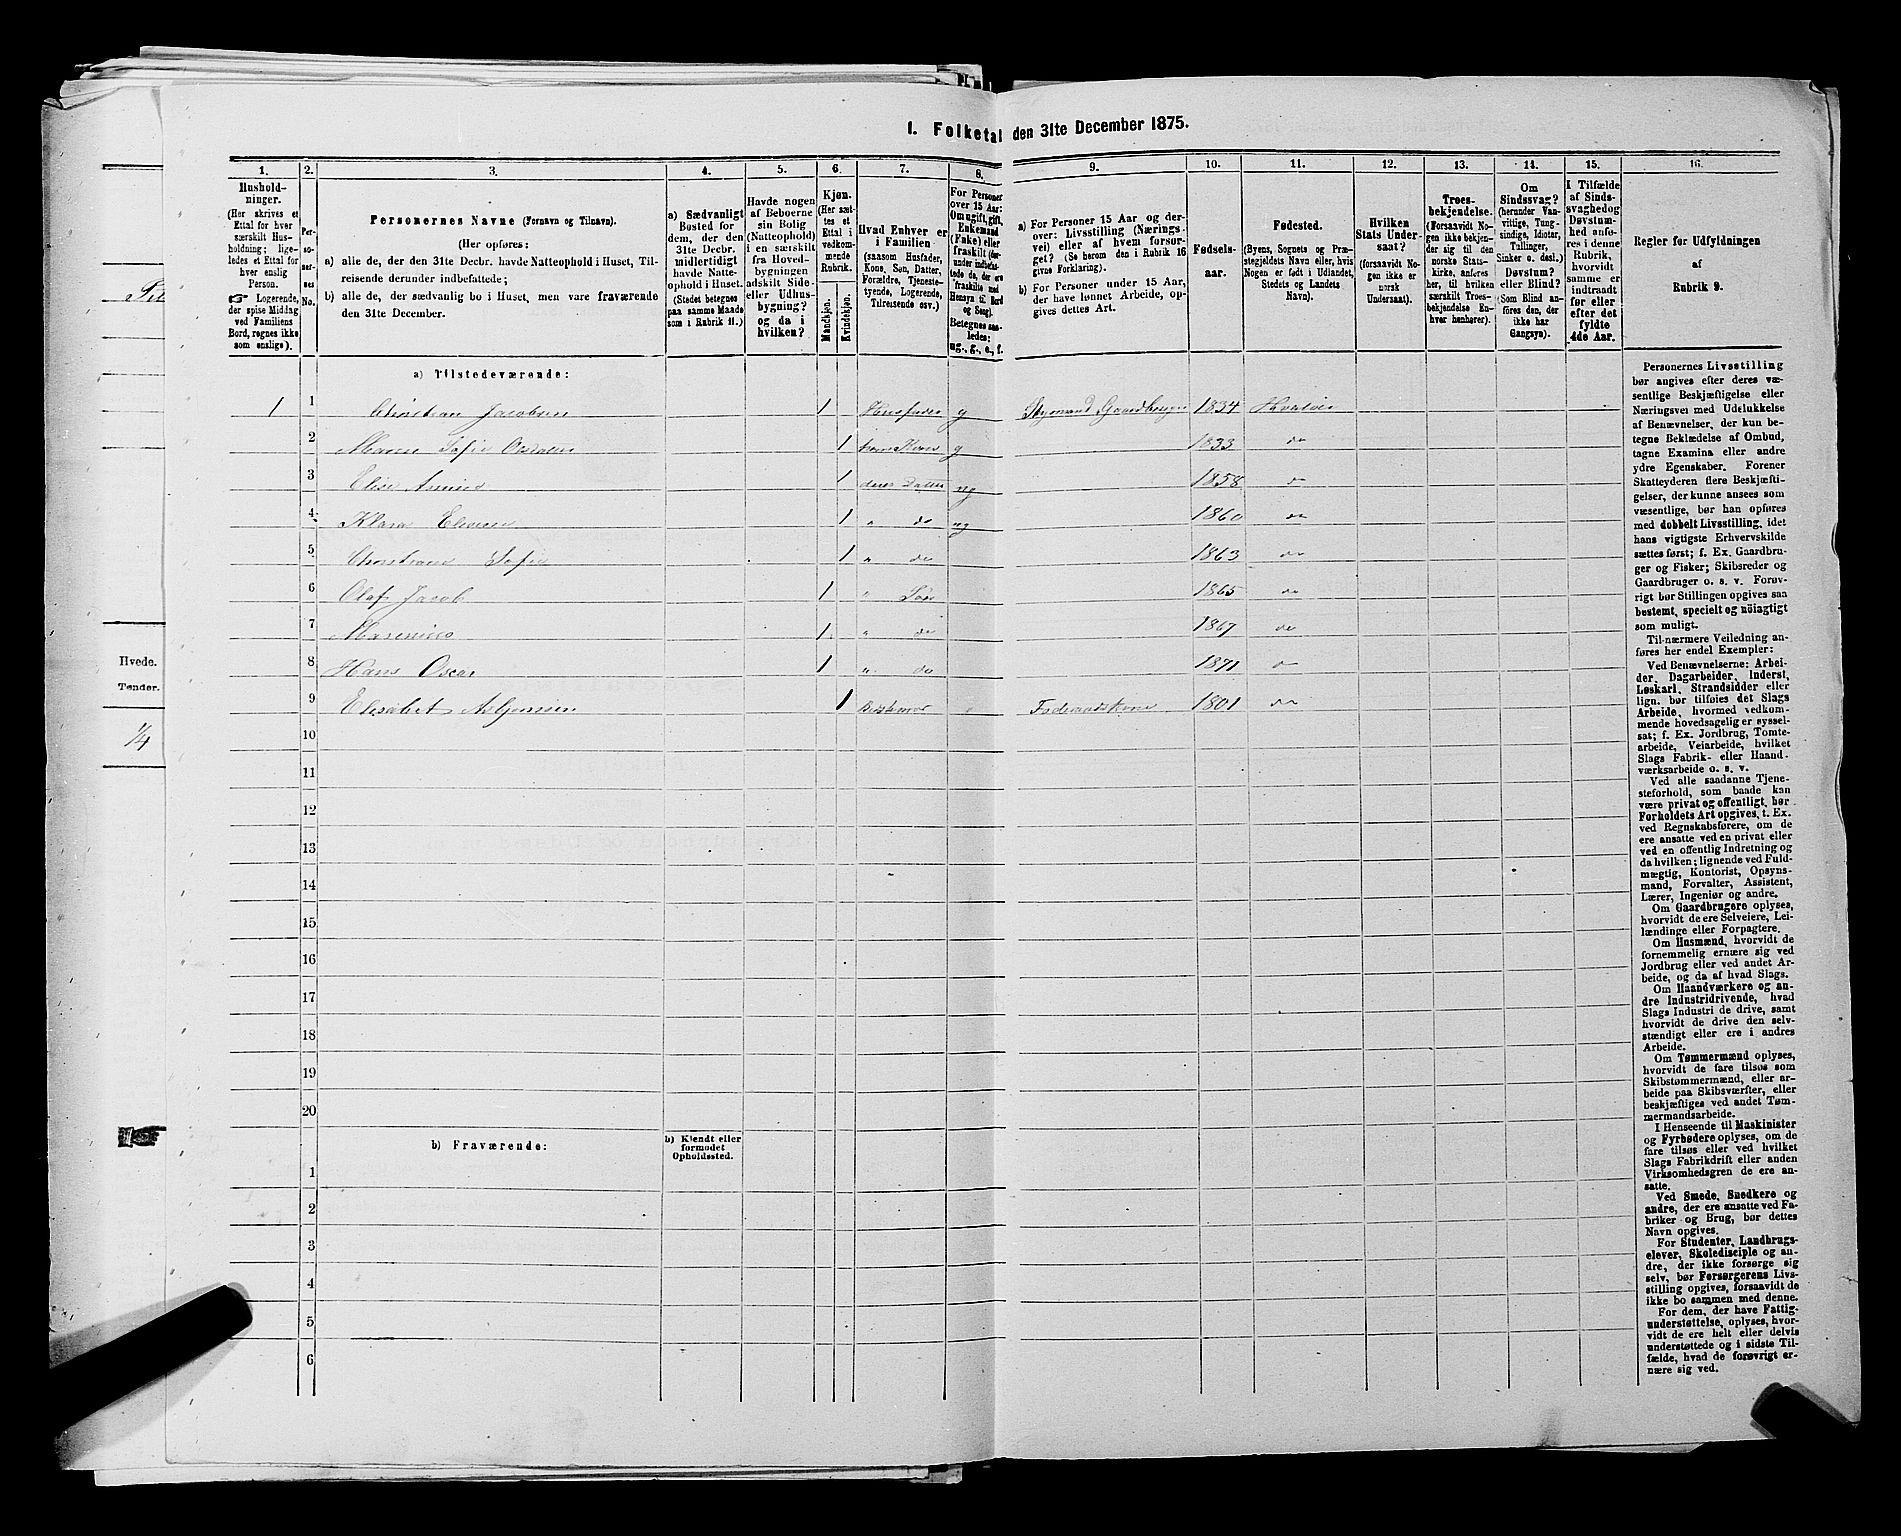 1. Folketal den 31te December 1875.
1. 2. 3. 4. 5. 6. 7. 8. 9. 10. 11. 12. 13. 14. 15. 16.
Hushold-
ninger.
(Her skrives et
Ettal for hver
særskilt Hus-
holdning; lige-
ledes et Ettal for
hver enslig
Person.
Logerende,
der spise Middag
ved Familiens
Bord, regnes ikke
som enslige).
Per-
so-
ner-
nes
No.
Personernes Navne (Fornavn og Tilnavn).
(Her opføres:
a) alle de, der den 31te Decbr. havde Natteophold i Huset, Til-
reisende derunder indbefattede;
b) alle de, der sædvanlig bo i Huset, men vare fraværende
den 31te December.
a) Sædvanligt
Bosted for
dem, der den
31te Decbr.
midlertidigt
havde Natte-
ophold i Huset.
(Stedet betegnes
paa samme Maade
som i Rubrik 11.)
Havde nogen
af Beboerne
sin Bolig
(Natteophold)
i en særskilt
fra Hoved-
bygningen
adskilt Side-
eller Udhus-
bygning?
og da i
hvilken?
Kjøn.
(Her sæt-
tes et
Ettal i
vedkom-
mende
Rubrik.
Mandkjøn.
Kvindekjøn.
Hvad Enhver er
i Familien
(saasom Husfader,
Kone, Søn, Datter,
Forældre, Tjeneste-
tyende, Logerende,
Tilreisende osv.)
For Personer
over 15 Aar:
Om ugift, gift,
Enkemand
(Enke) eller
fraskilt
Hensyn til Bord
og Seng).
Betegnes saa-
ledes:
ug., g., e., f.
a) For Personer 15 Aar og der-
over: Livsstilling (Nærings-
vei) eller af hvem forsør-
get? (Se herom den i Rubrik 16
givne Forklaring).
b) For Personer under 15 Aar,
der have lønnet Arbeide, op-
gives dettes Art.
Fødsels-
aar.
Fødested.
(Byens, Sognets og Præ-
stegjeldets Navn eller, hvis
Nogen er født i Udlandet,
Stedets og Landets
Navn).
Hvilken
Stats Under-
saat?
(forsaavidt No-
gen ikke er
norsk
Undersaat).
Troes-
bekjendelse.
(Forsaavidt No-
gen ikke bekjen-
der sig til den
norske Stats-
kirke, anføres
her, til hvilken
særskilt Troes-
bekjendelse En-
hver henhører).
Om
Sindssvag?
(herunder Van-
vittige, Tung-
sindige, Idioter,
Tullinger,
Sinker o. desl.)
Døvstum?
eller Blind?
(Som Blind an-
føres den, der
ikke har
Gangsyn).
I Tilfælde
af Sinds-
svaghed og
Døvstum-
hed anfø-
res i denne
Rubrik,
hvorvidt
samme er
indtraadt
før eller
efter det
fyldte
4de Aar.
Regler for Udfyldningen
af
Rubrik 9.
a) Tilstedeværende:
1 1 Christian Jacobsen 1 Husfader g Styrmand Gaardbruger 1834 Hvaløer
2 Maren Sofie Olsdatter 1 hans Kone g 1833 do
3 Elise 1 deres Datter ug 1858 do
4 Klara 1 " do ug 1860 do
5 Sofie 1 " do 1863 do
6 Olaf Jacob 1 " Søn 1865 do
7 Marenius 1 " do 1867 do
8 Hans Oscar 1 " do 1871 do
9 Elisabet Asbjønsen 1 Bestemor Føderaadskone 1801 do
10
11
12
13
14
15
16
17
18
19
20
b) Fraværende:
b) Kjendt eller
formodet
Opholdssted.
1
2
3
4
5
6
Personernes Livsstilling
bør angives efter deres væ-
sentlige Beskjæftigelse eller
Næringsvei med Udelukkelse
af Benævnelser, der kun be-
tegne Beklædelse af Ombud,
tagne Examina eller andre
ydre Egenskaber. Forener
Skatteyderen flere Beskjæfti-
gelser, der kunne ansees som
væsentlige, bør han opføres
med dobbelt Livsstilling, idet
hans vigtigste Erhvervskilde
sættes først; f. Ex. Gaardbru-
ger og Fisker; Skibsreder og
Gaardbruger o. s. v. Forøv-
rigt bør Stillingen opgives saa
bestemt, specielt og nöiagtigt
som muligt.
Til nærmere Veiledning an-
føres her endel Exempler:
Ved Benævnelserne: Arbei-
der, Dagarbeider, Inderst,
Løskarl, Strandsidder eller
lign. bør tilføies det Slags
Arbeide, hvormed vedkom-
mende hovedsagelig er syssel-
sat; f. Ex. Jordbrug, Tomte-
arbeide, Veiarbeide, hvilket
Slags Fabrik- eller Haand-
værksarbeide o. s. v.
Ved alle saadanne Tjene-
steforhold, som baade kan
være privat og offentligt, bør
Forholdets Art opgives, t. Ex.
ved Regnskabsførere, om de
ere ansatte ved en privat eller
ved en offentlig Indretning og
da hvilken; lignende ved Fuld-
mægtig, Kontorist, Opsyns-
mand, Forvalter, Assistent,
Lærer, Ingeniør og andre.
Om Gaardbrugere oplyses,
hvorvidt de ere Selveiere, Lei-
lændinge eller Forpagtere.
Om Husmænd, hvorvidt de
fornemmelig ernære sig ved
Jordbrug eller ved andet Ar-
beide, og da af hvad Slags.
Om Haandværkere og an-
dre Industridrivende, hvad
Slags Industri de drive, samt
hvorvidt de drive den selv-
stændigt eller ere i andres
Arbeide.
Om Tømmermænd oplyses,
hvorvidt de fare tilsøs som
Skibstømmermænd, eller ar-
beide paa Skibsværfter, eller
beskjæftiges ved andet Tøm-
mermandsarbeide.
I Henseende til Maskinister
og Fyrbødere oplyses, om de
fare tilsøs eller ved hvilket
Slags Fabrikdrift eller anden
Virksomhedsgren de ere an-
satte.
Ved Smede, Snedkere og
andre, der ere ansatte ved Fa-
briker og Brug, bør dettes
Navn opgives.
For Studenter, Landbrugs-
elever, Skoledisciple og an-
dre, der ikke forsørge sig
selv, bør Forsørgerens Livs-
stilling opgives, forsaavidt de
ikke bo sammen med denne.
For dem, der have Fattig-
understøttelse, oplyses, hvor-
vidt de ere helt eller delvis
understøttede og i sidste Til-
fælde, hvad de forøvrigt er-
nære sig ved.
Hvede.
Tønder.
1/4